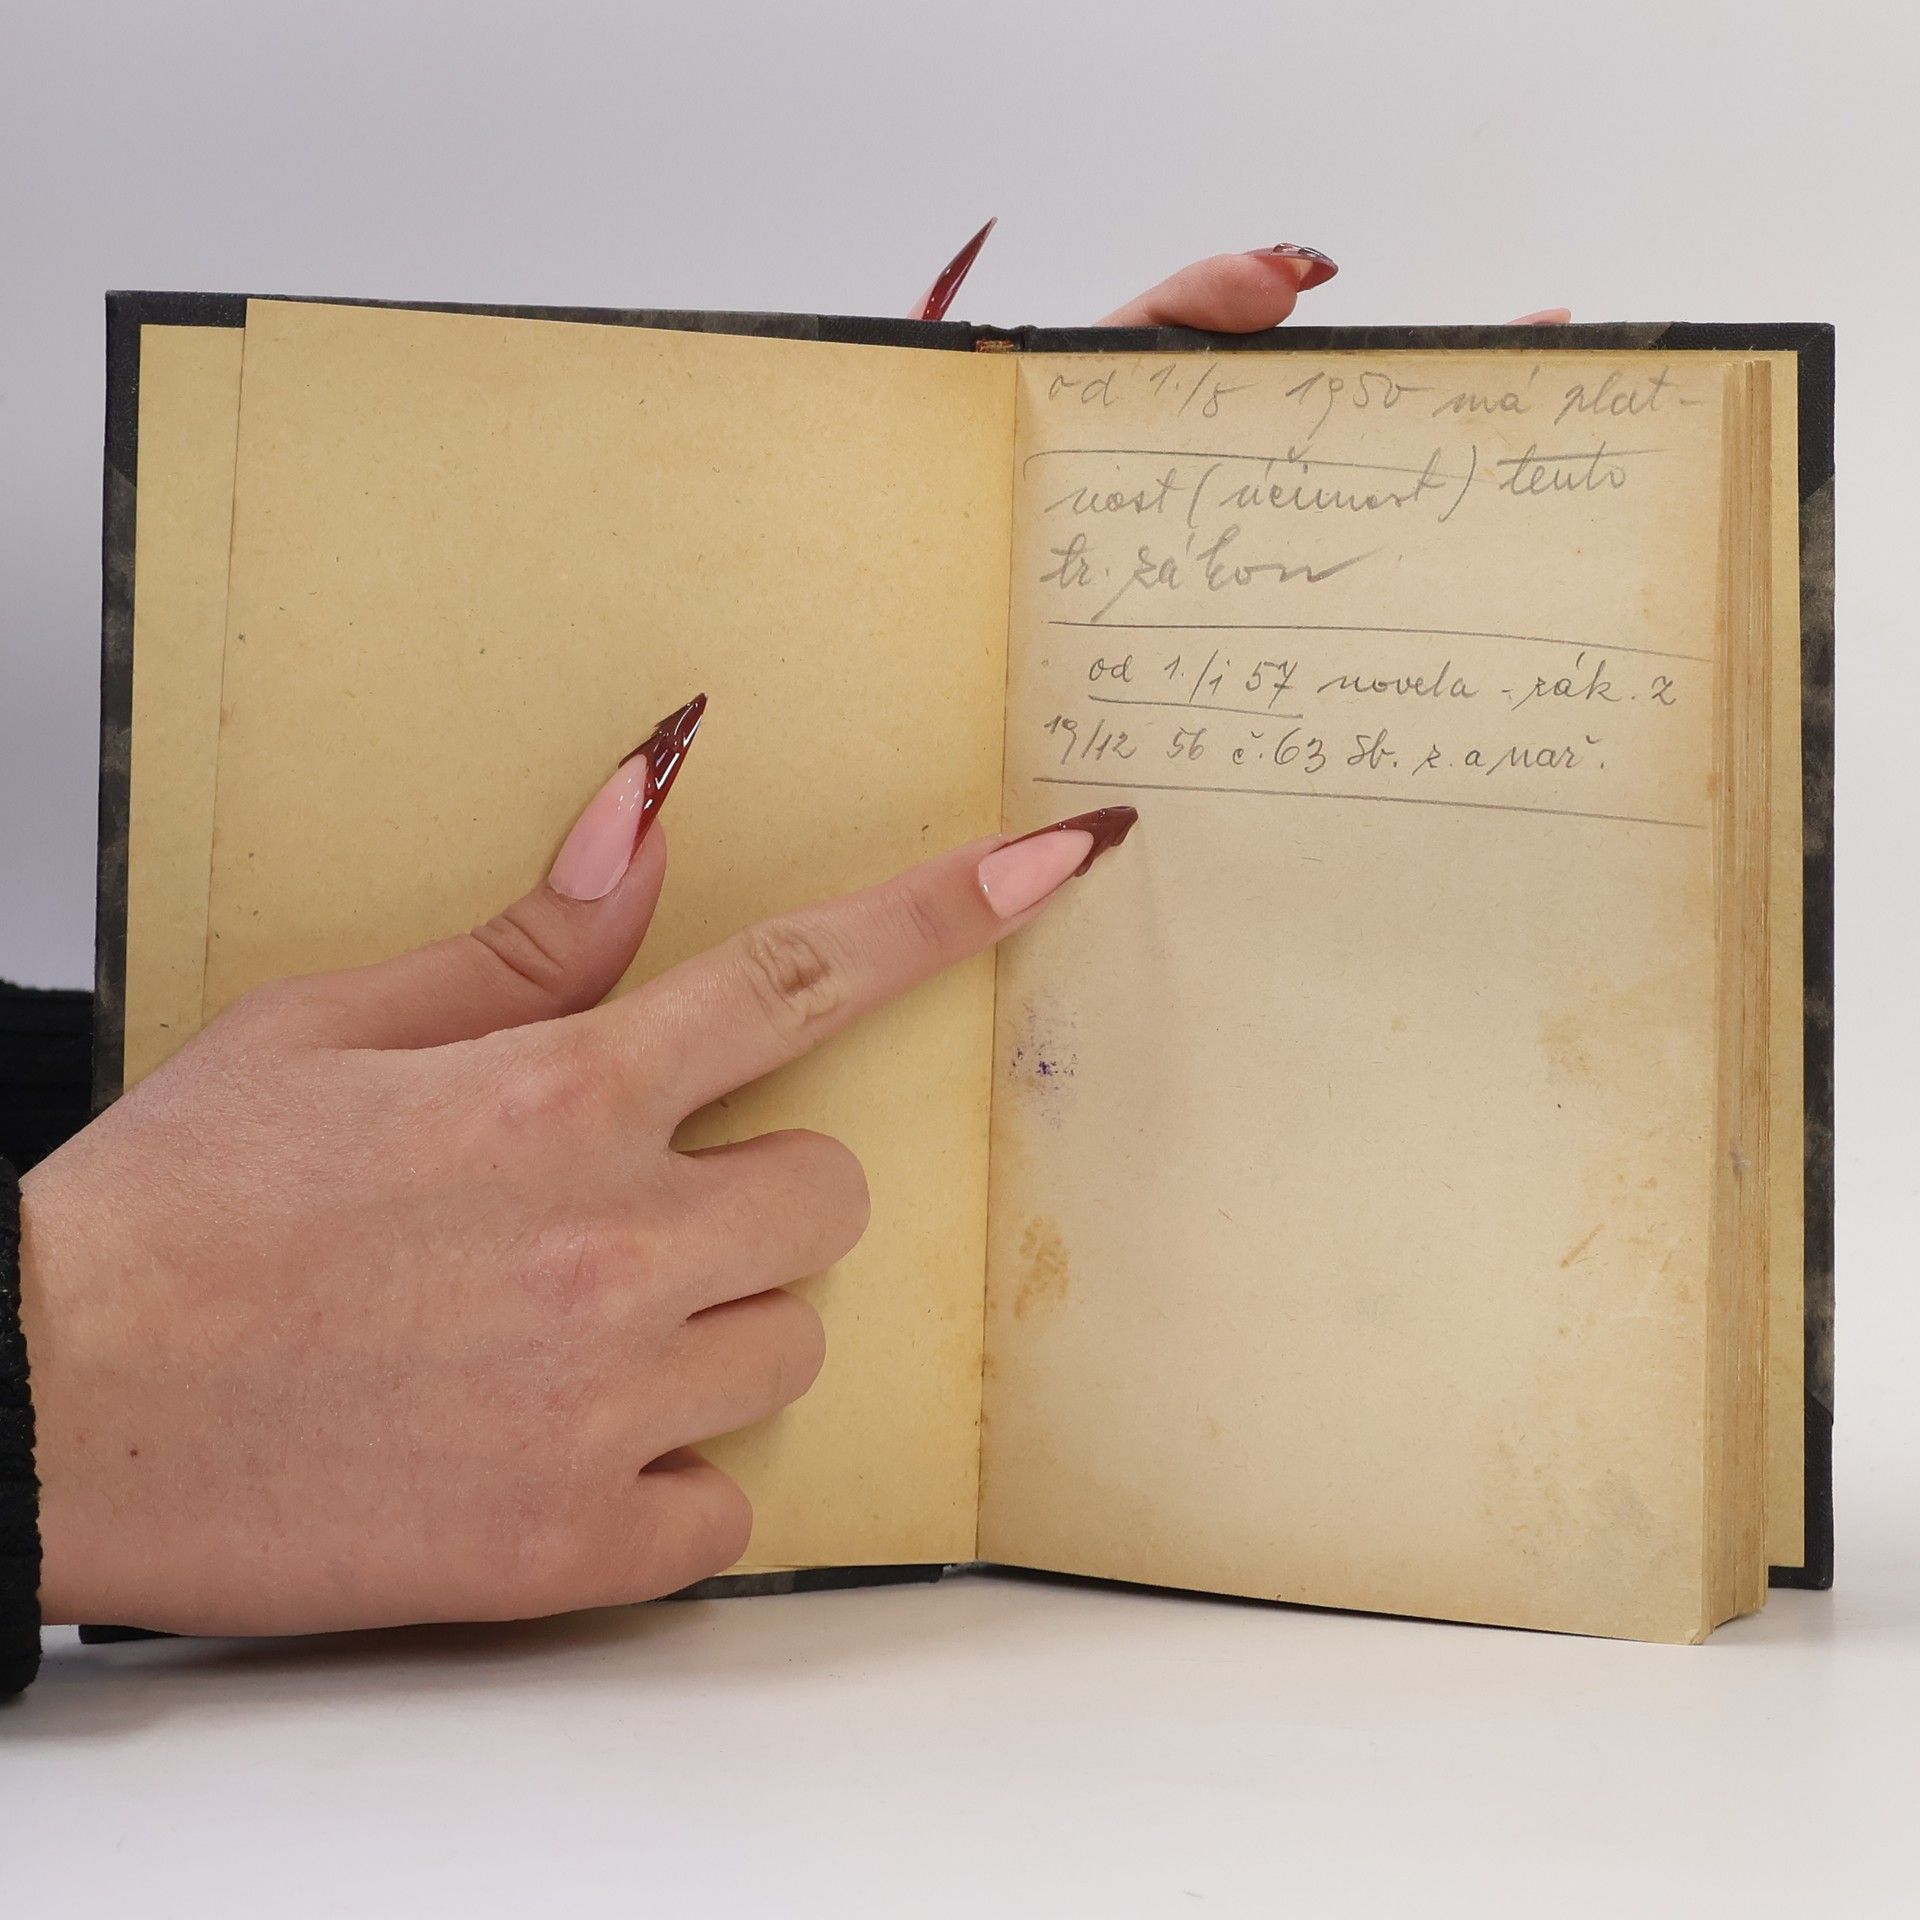 od 1./8 1950 má plat-
nost (účinnost) tento
tr. zákon
od 1./i 57 novela - zák. z
19/12 56 č. 63 Sb. z. a nař.